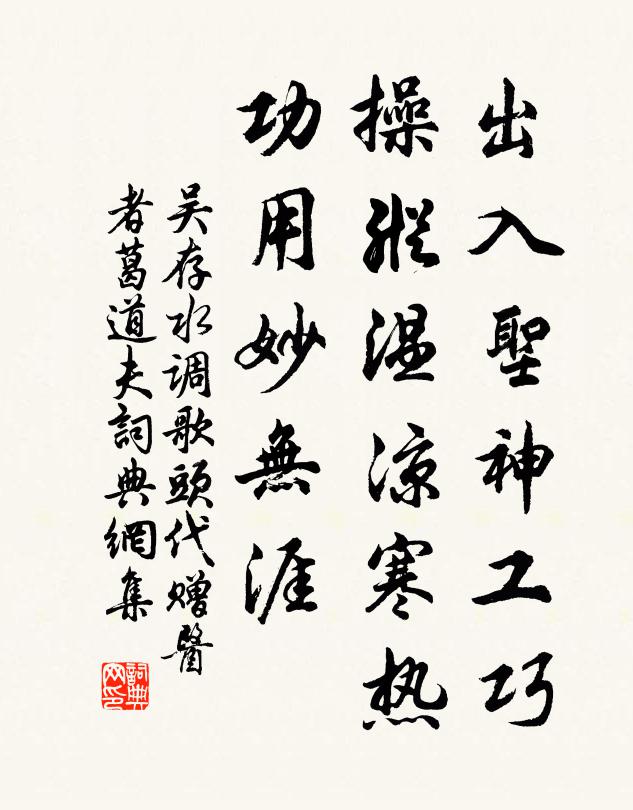 出入聖神工巧
操縱温凉寒热
功用妙無涯
吴存水调歌頭代赠醫
者葛道夫詞典網集
詞典网印